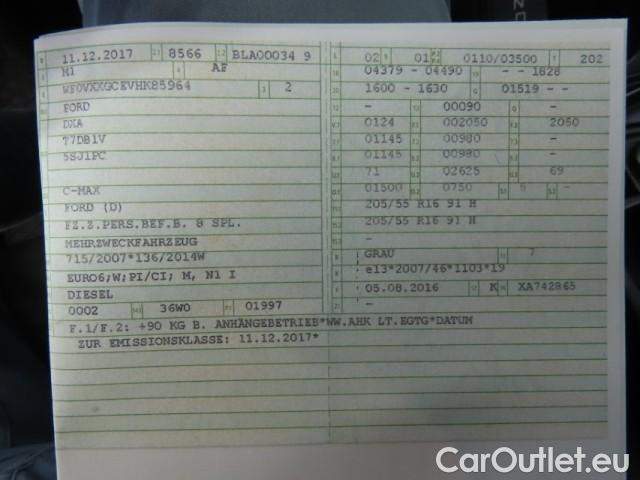 11.12.2017 8566 BLA00034 9
M1 AF
WF0VXXGCEVHK85964 2
FORD
DXA
77DB1V
5SJ1PC
C-MAX
FORD (D)
FZ.Z.PERS.BEF.B. 8 SPL.
MEHRZWECKFAHRZEUG
715/2007*136/2014W
EURO6;W;PI/CI; M, N1 I
DIESEL
0002 36W0 01997
02 01 0110/03500 202
04379 - 04490 - - 1828
1600 - 1630 01519 --
- 00090 -
0124 002050 2050
01145 00980 -
01145 00980 -
71 02625 69
01500 0750 -
205/55 R16 91 H
205/55 R16 91 H
-
GRAU 7
e13*2007/46*1103*19
05.08.2016 K XA742865
-
F.1/F.2: +90 KG B. ANHÄNGEBETRIEB*WW.AHK LT.EGTG*DATUM
ZUR EMISSIONSKLASSE: 11.12.2017*
CarOutlet.eu